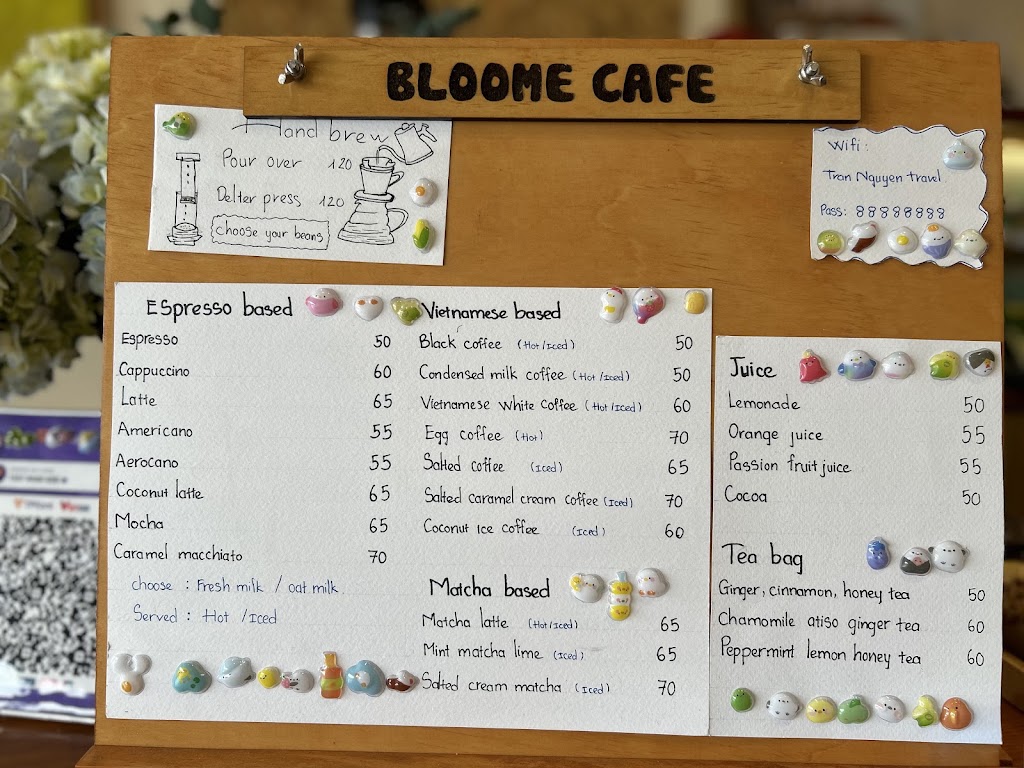 BLOOME CAFE
Hand brew
Pour over 120
Delter press 120
choose your beans
Wifi:
Tran Nguyen travel
Pass: 88888888
Espresso based
Espresso 50
Cappuccino 60
Latte 65
Americano 55
Aerocano 55
Coconut latte 65
Mocha 65
Caramel macchiato 70
choose : Fresh milk / oat milk
Served : Hot / Iced
Vietnamese based
Black coffee (Hot/Iced) 50
Condensed milk coffee (Hot/Iced) 50
Vietnamese White Coffee (Hot/Iced) 60
Egg coffee (Hot) 70
Salted coffee (Iced) 65
Salted caramel cream coffee (Iced) 70
Coconut Ice coffee (Iced) 60
Matcha based
Matcha latte (Hot/Iced) 65
Mint matcha lime (Iced) 65
Salted cream matcha (Iced) 70
Juice
Lemonade 50
Orange juice 55
Passion fruit juice 55
Cocoa 50
Tea bag
Ginger, cinnamon, honey tea 50
Chamomile atiso ginger tea 60
Peppermint lemon honey tea 60